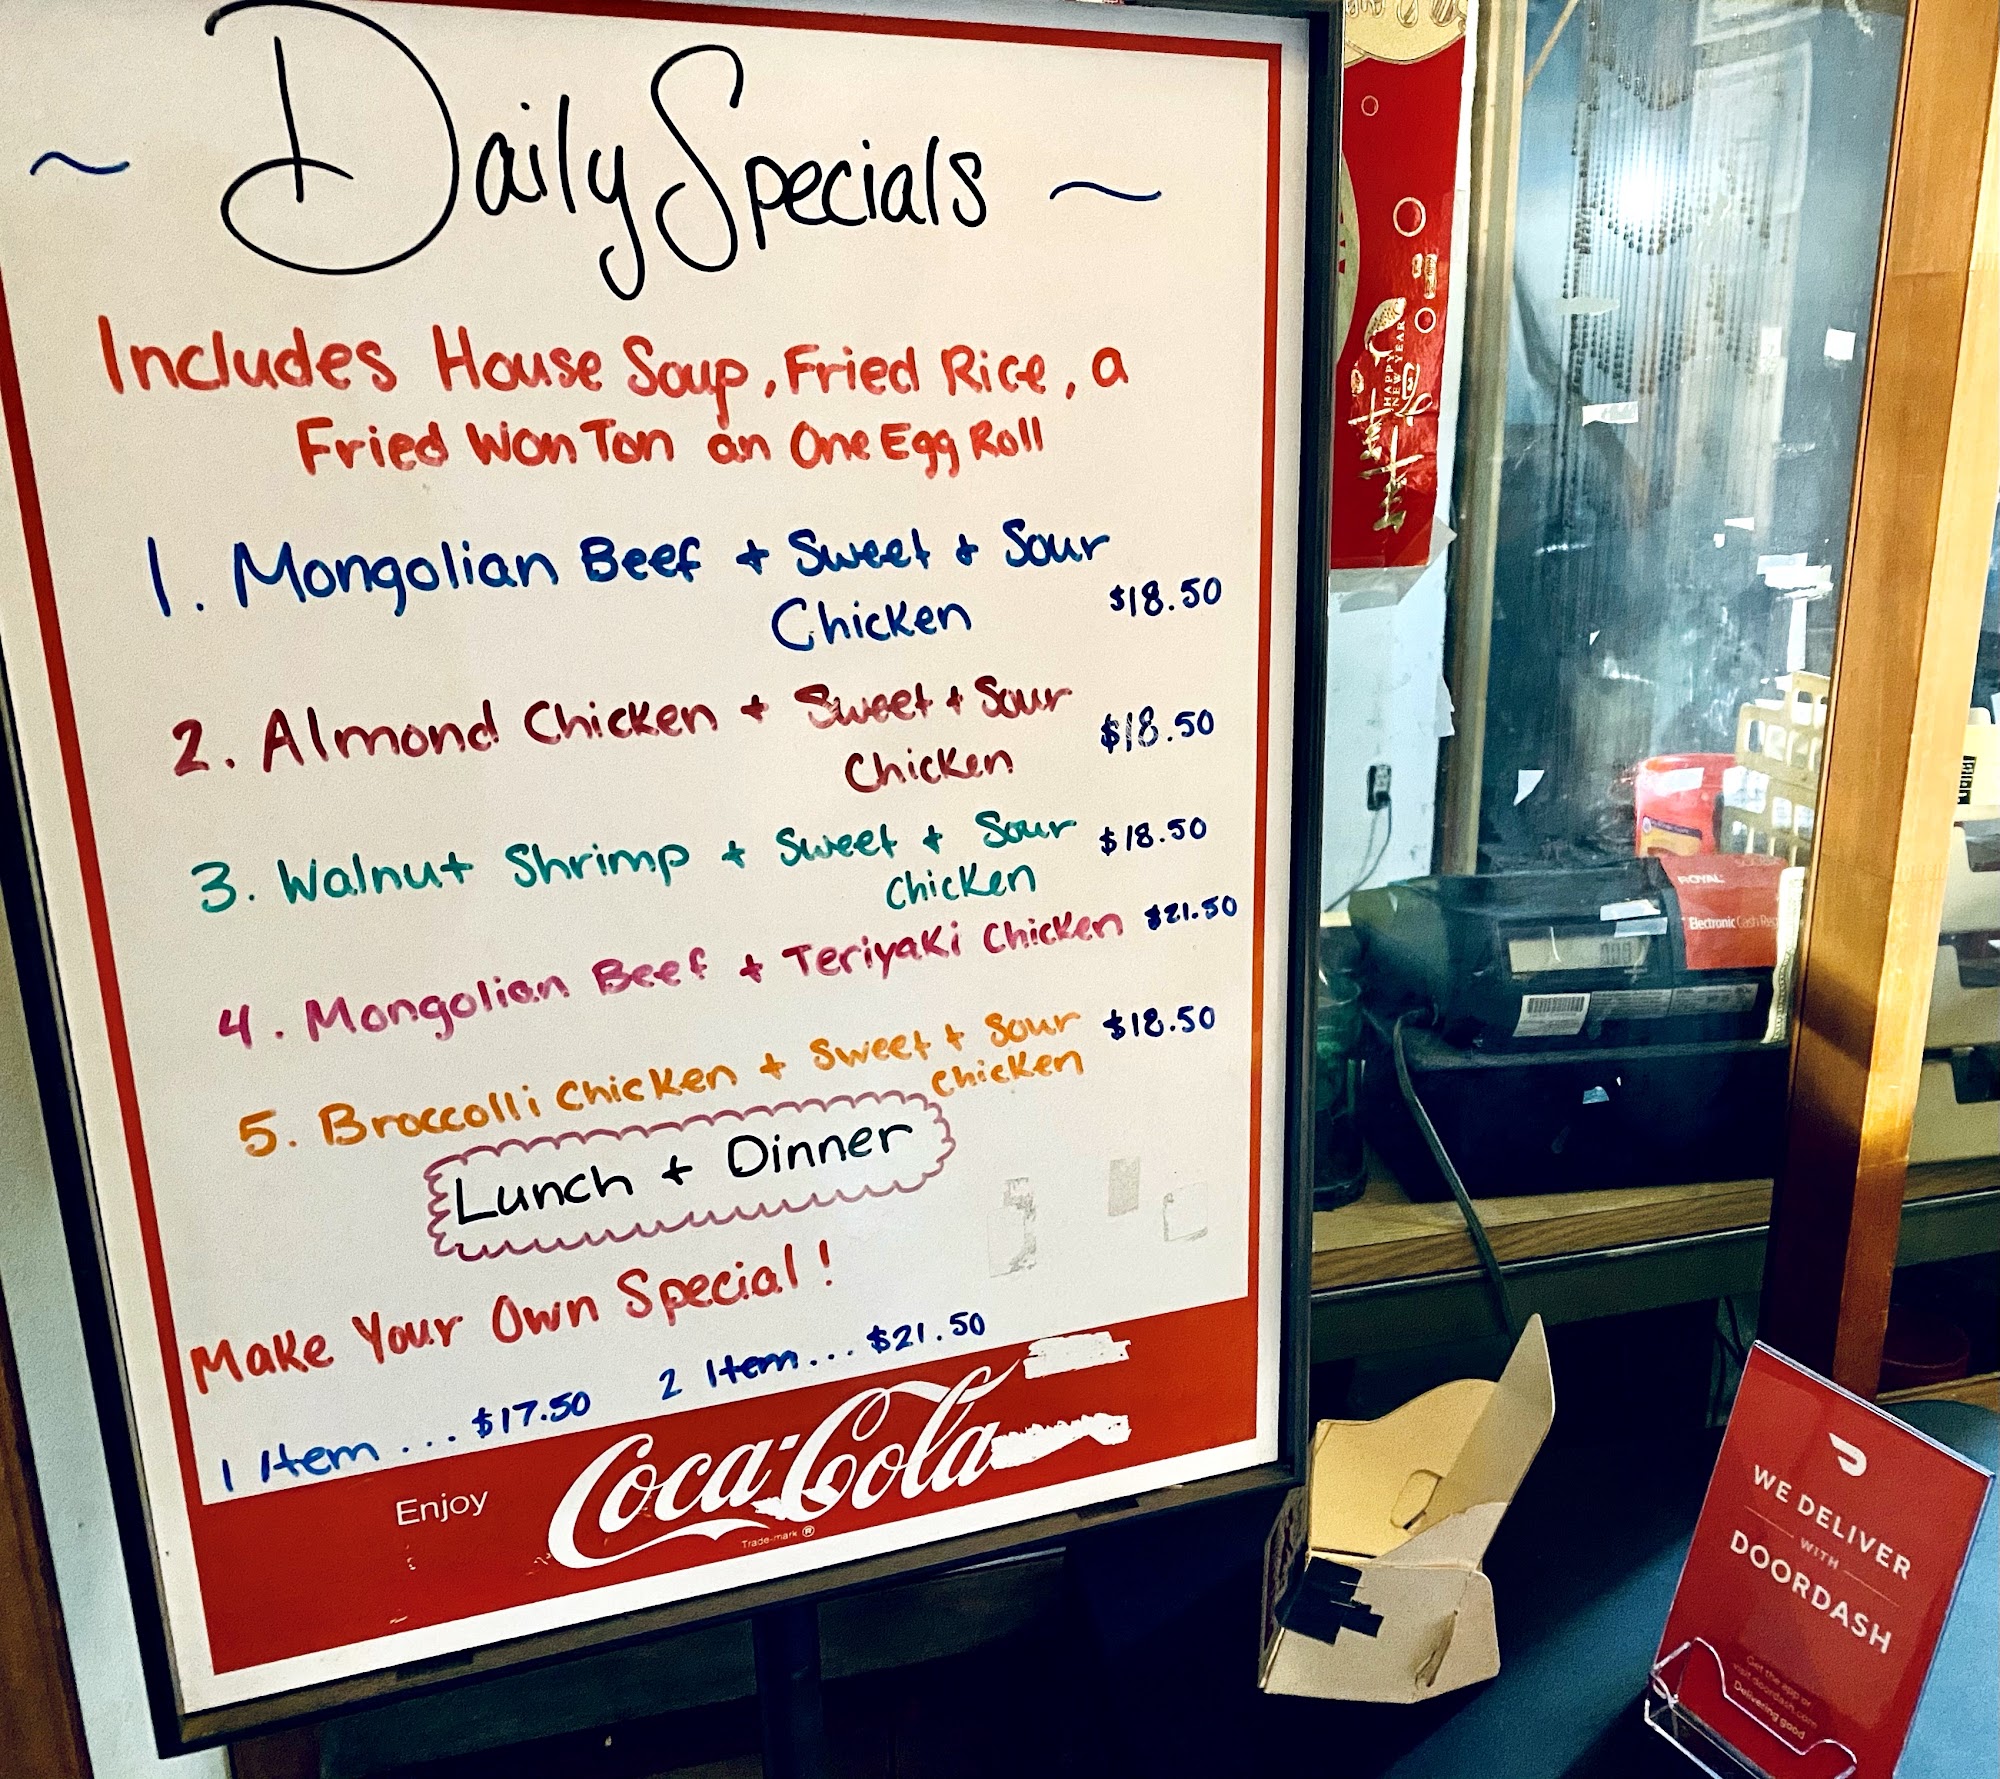 ~ Daily Specials ~
Includes House Soup, Fried Rice, a
Fried Won Ton an One Egg Roll
1. Mongolian Beef + Sweet + Sour
Chicken $18.50
2. Almond Chicken + Sweet + Sour
Chicken $18.50
3. Walnut Shrimp + Sweet + Sour
Chicken $18.50
4. Mongolian Beef + Teriyaki Chicken $21.50
5. Broccolli Chicken + Sweet + Sour
Chicken $18.50
Lunch + Dinner
Make Your Own Special!
1 Item ... $17.50 2 Item... $21.50
Enjoy
Coca-Cola
Trade-mark ®
HAPPY
NEW YEAR
ROYAL
Electronic Cash
WE DELIVER
WITH
DOORDASH
Get the app or
visit doordash.com
Delivering good